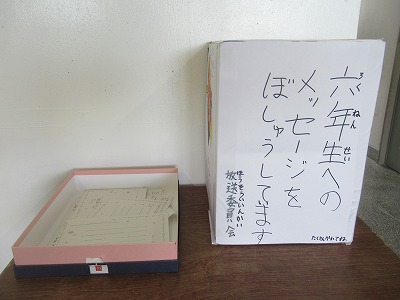 六年生への
ろくねんせい
メッセージを
ぼしゅうしています
放送委員会
ほうそういいんかい
たくさんかいてね。